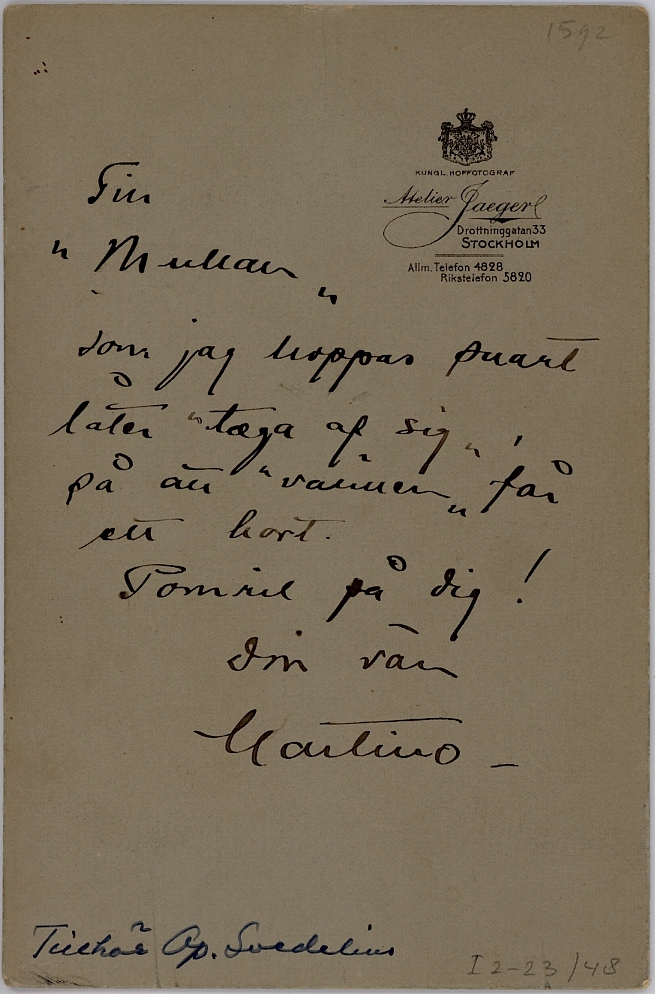 1592
KUNGL. HOFFOTOGRAF
Atelier Jaeger
Drottninggatan 33
STOCKHOLM
Allm. Telefon 4828
Rikstelefon 5820
Till
"
"
som jag hoppas snart
låter "taga af sig",
så att "vännen" får
ett kort.
på dig!
Din vän
Martino –
Tillhör Ap. Svedelius
I 2-23/48